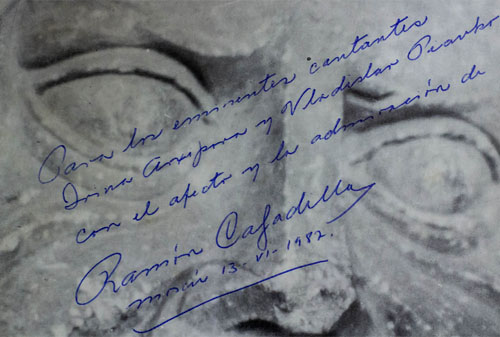 Para los eminentes cantantes
Irina Arxipova y Vladislav Piavko
con el afecto y la admiración de
Ramón Cafadella
13-VI-1982.